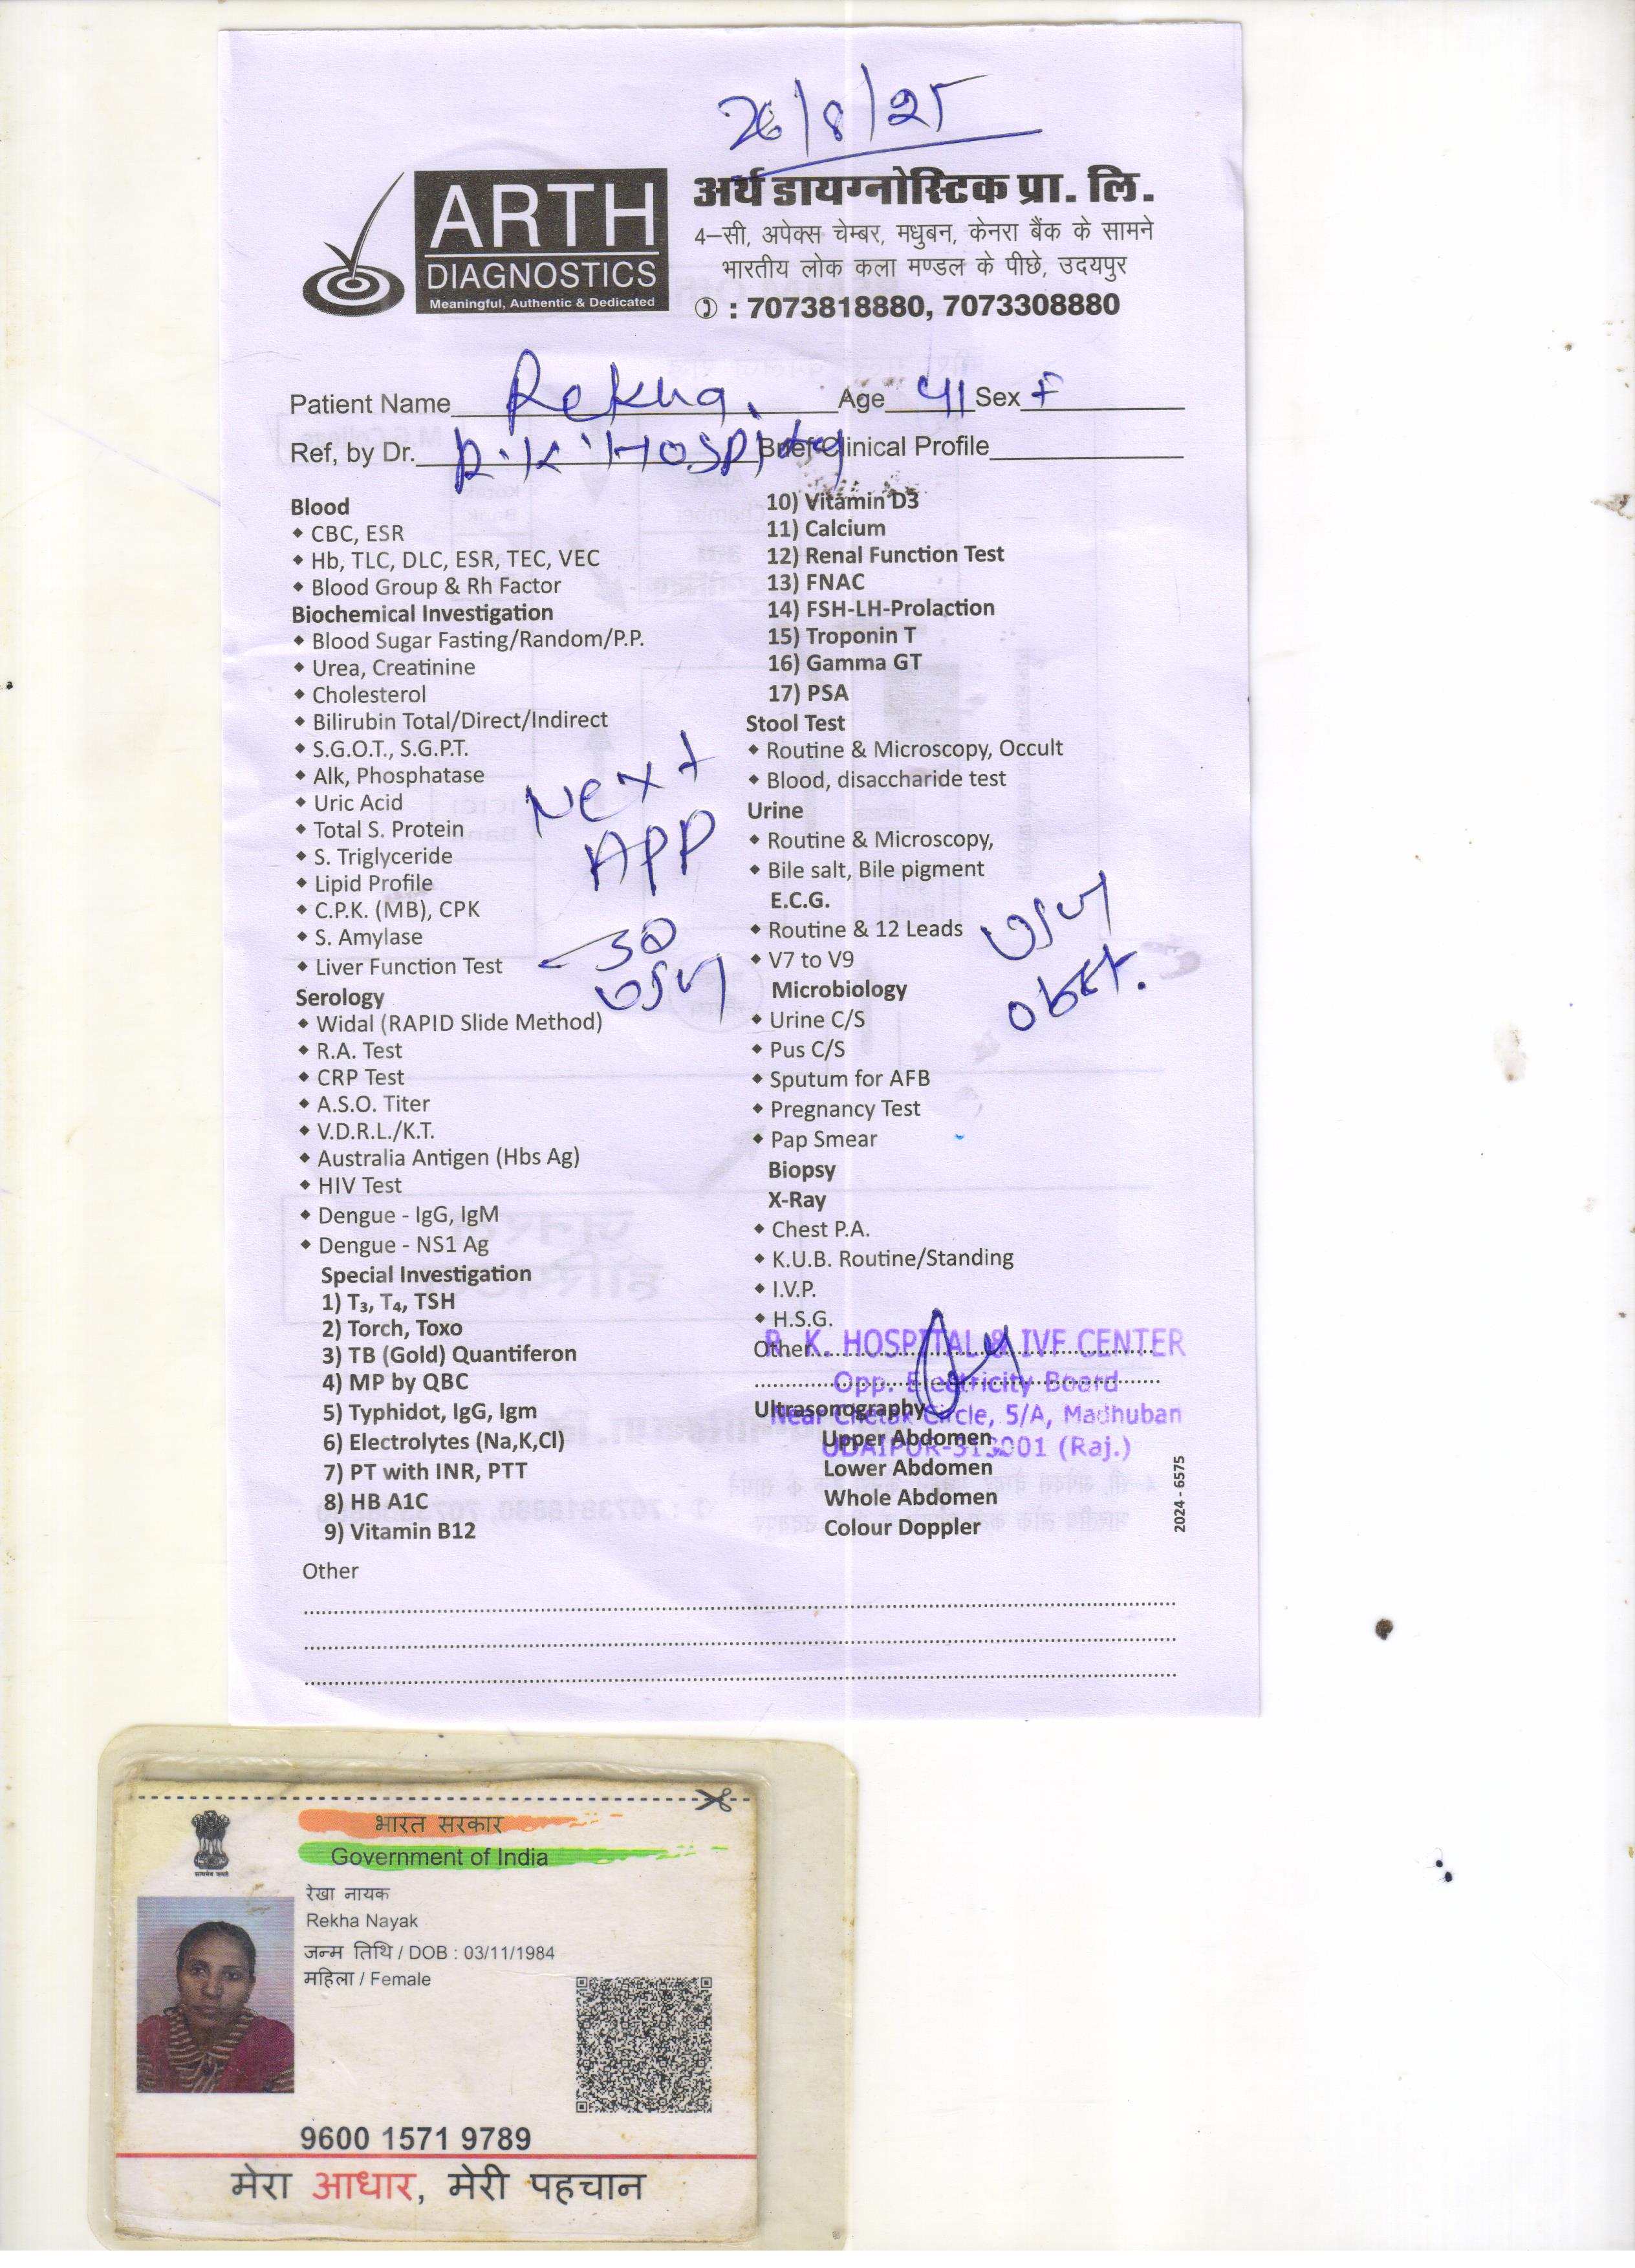 26/8/25
ARTH
DIAGNOSTICS
Meaningful, Authentic & Dedicated
अर्थ डायग्नोस्टिक प्रा. लि.
4–सी, अपेक्स चेम्बर, मधुबन, केनरा बैंक के सामने
भारतीय लोक कला मण्डल के पीछे, उदयपुर
: 7073818880, 7073308880
Patient Name Rekha. Age 41 Sex F
Ref, by Dr. R.K. Hospital Brief Clinical Profile
Blood
CBC, ESR
Hb, TLC, DLC, ESR, TEC, VEC
Blood Group & Rh Factor
Biochemical Investigation
Blood Sugar Fasting/Random/P.P.
Urea, Creatinine
Cholesterol
Bilirubin Total/Direct/Indirect
S.G.O.T., S.G.P.T.
Alk, Phosphatase
Uric Acid
Total S. Protein
S. Triglyceride
Lipid Profile
C.P.K. (MB), CPK
S. Amylase
Liver Function Test
Next
APP
Serology
Widal (RAPID Slide Method)
R.A. Test
CRP Test
A.S.O. Titer
V.D.R.L./K.T.
Australia Antigen (Hbs Ag)
HIV Test
Dengue - IgG, IgM
Dengue - NS1 Ag
Special Investigation
1) T₃, T₄, TSH
2) Torch, Toxo
3) TB (Gold) Quantiferon
4) MP by QBC
5) Typhidot, IgG, Igm
6) Electrolytes (Na,K,Cl)
7) PT with INR, PTT
8) HB A1C
9) Vitamin B12
10) Vitamin D3
11) Calcium
12) Renal Function Test
13) FNAC
14) FSH-LH-Prolaction
15) Troponin T
16) Gamma GT
17) PSA
Stool Test
Routine & Microscopy, Occult
Blood, disaccharide test
Urine
Routine & Microscopy,
Bile salt, Bile pigment
E.C.G.
Routine & 12 Leads
V7 to V9
Microbiology
Urine C/S
Pus C/S
Sputum for AFB
Pregnancy Test
Pap Smear
Biopsy
X-Ray
Chest P.A.
K.U.B. Routine/Standing
I.V.P.
H.S.G.
Other
R. K. HOSPITAL & IVF CENTER
Opp. Electricity Board
Near Chetak Circle, 5/A, Madhuban
UDAIPUR-313001 (Raj.)
Ultrasonography
Upper Abdomen
Lower Abdomen
Whole Abdomen
Colour Doppler
2024 - 6575
Other
भारत सरकार
Government of India
रेखा नायक
Rekha Nayak
जन्म तिथि / DOB : 03/11/1984
महिला / Female
9600 1571 9789
मेरा आधार, मेरी पहचान